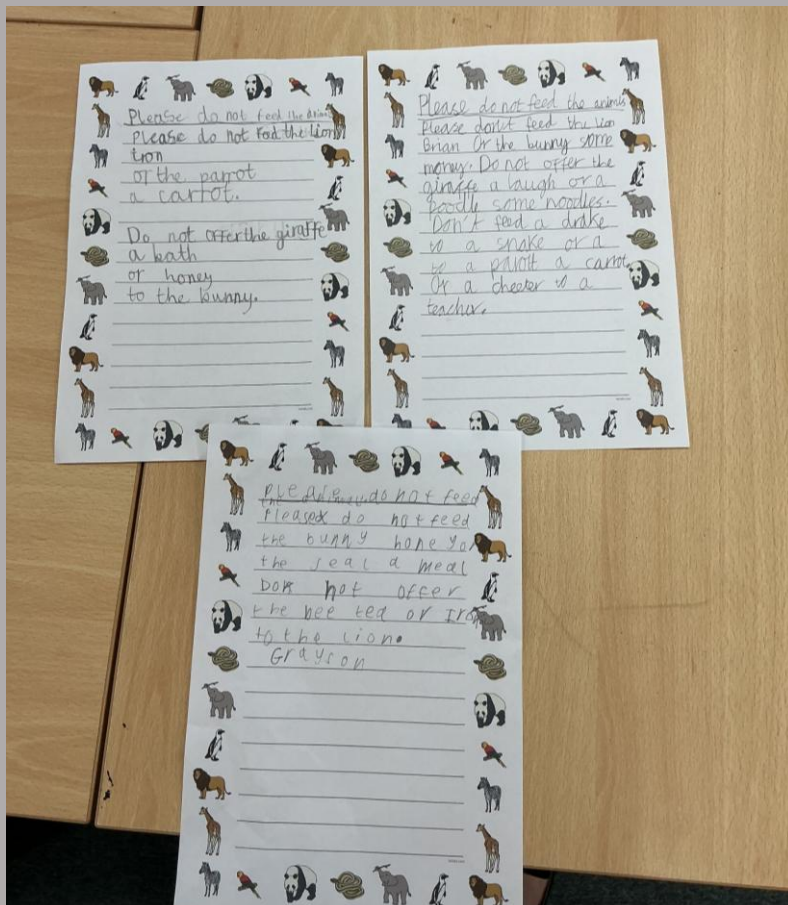 Please do not feed the anim
Please do not Fod the lion
Iron
or the parrot
a carrot.
Do not offer the giraffe
a bath
or honey
to the bunny.
Please do not feed the animals
Please don't feed the lion
Brian Or the bunny some
money. Do not offer the
giraffe a laugh or a
poodle some noodles.
Don't feed a drake
to a snake or a
to a parott a carrot
Or a cheeter to a
teacher.
PLeaie do not feed
the
Pleased do not feed
the bunny hone y or
the seal a meal
Dor not offer
the bee tea or Iron
to the Lion.
Grayson